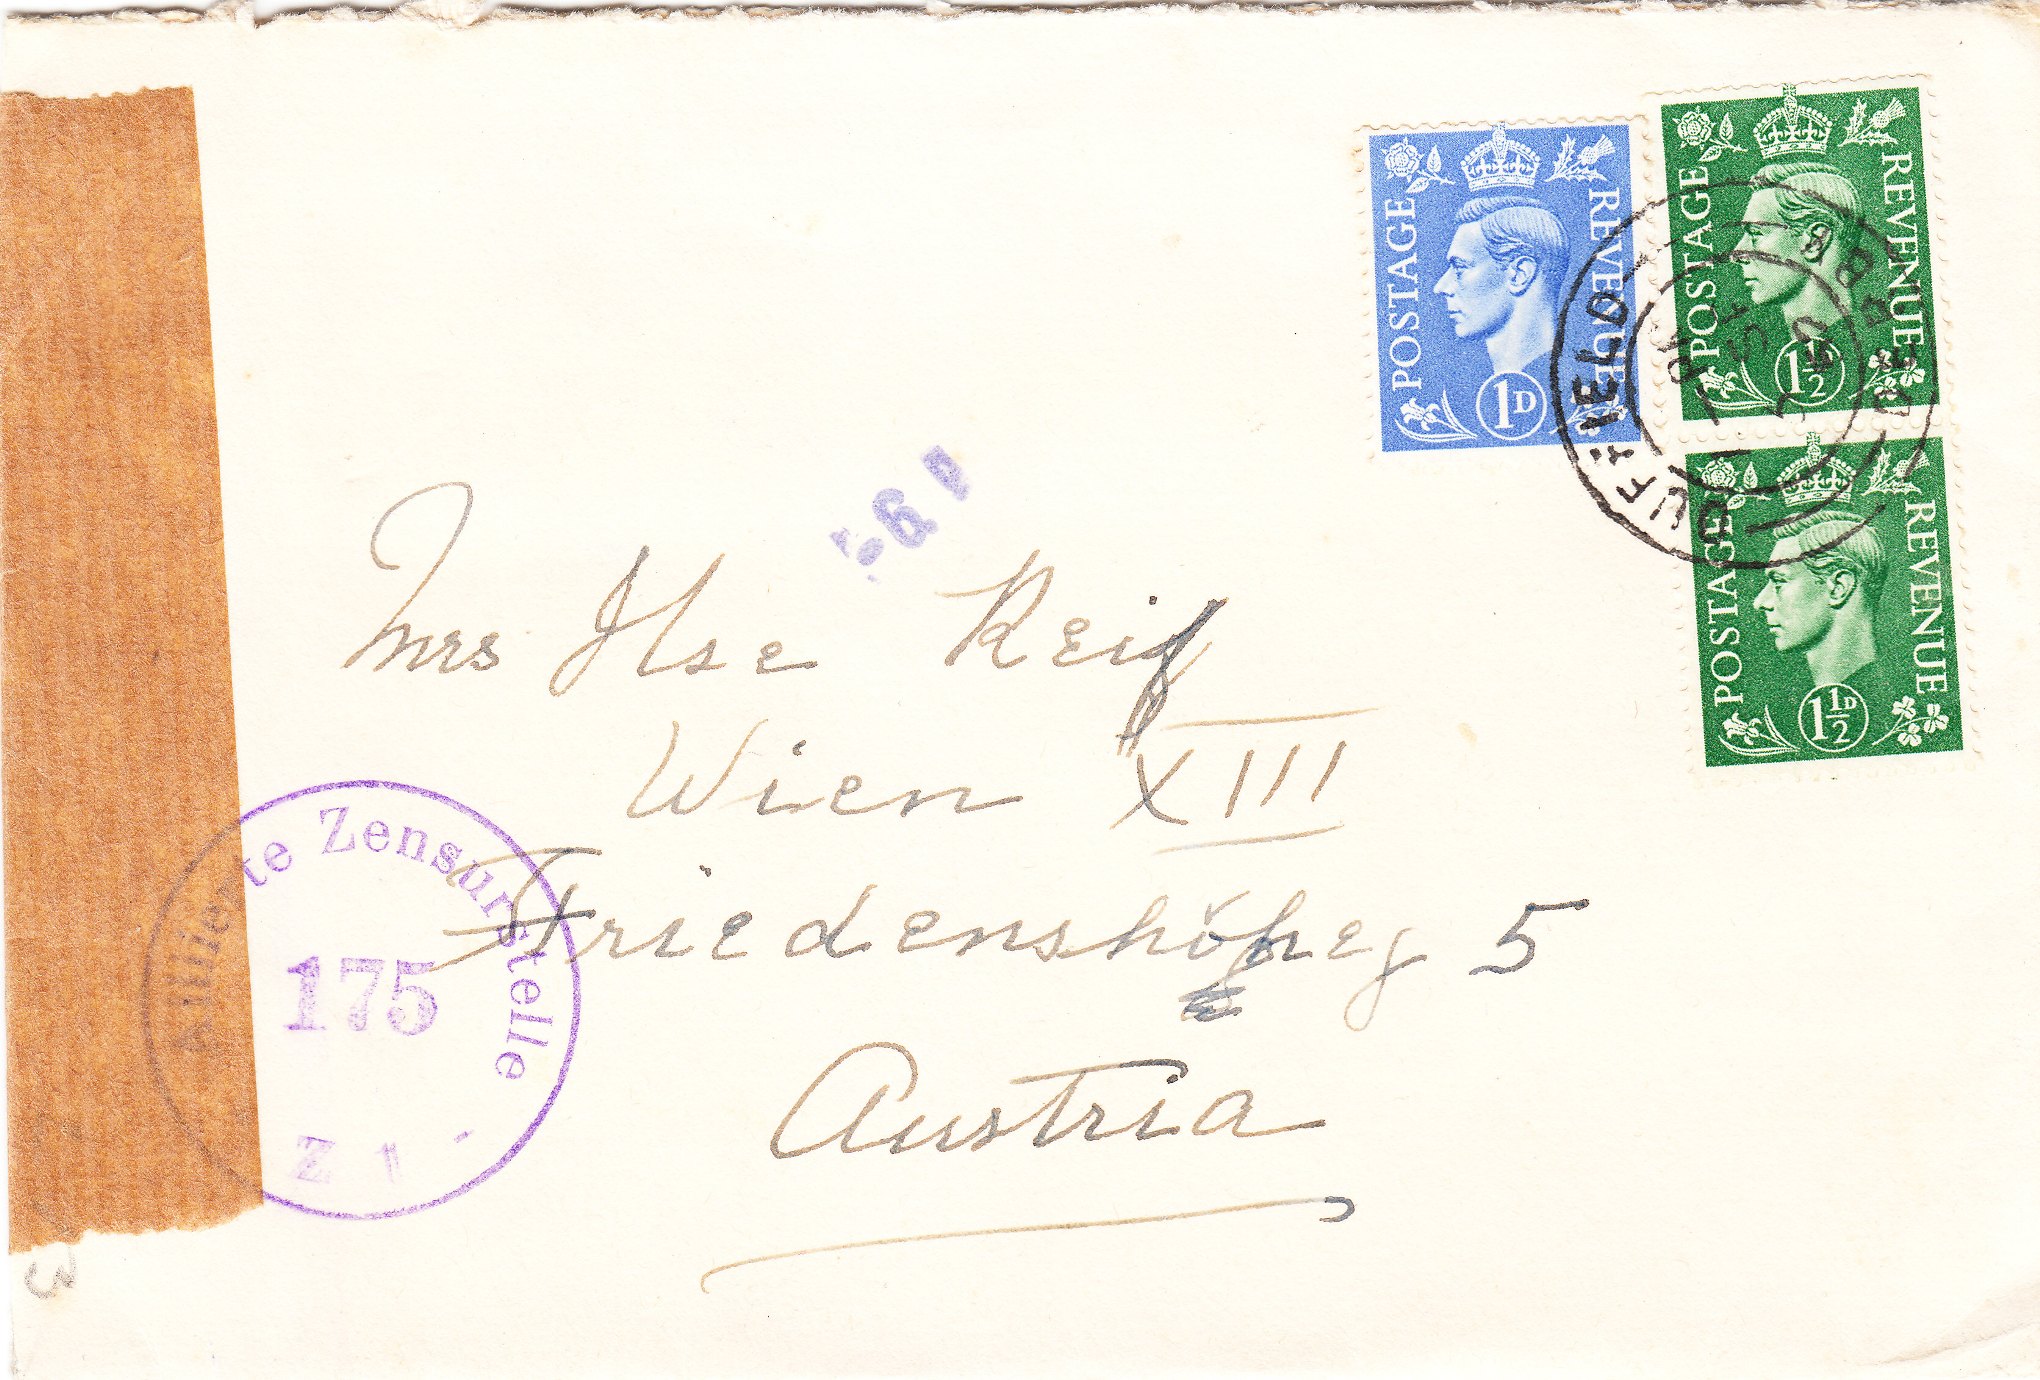 POSTAGE REVENUE 1D
POSTAGE REVENUE 1½D
POSTAGE REVENUE 1½D
DUFFIELD DERBY
Mrs Ilse Reif
Wien XIII
Friedenshöheg 5
Austria
Alliierte Zensurstelle
175
Z 1
3